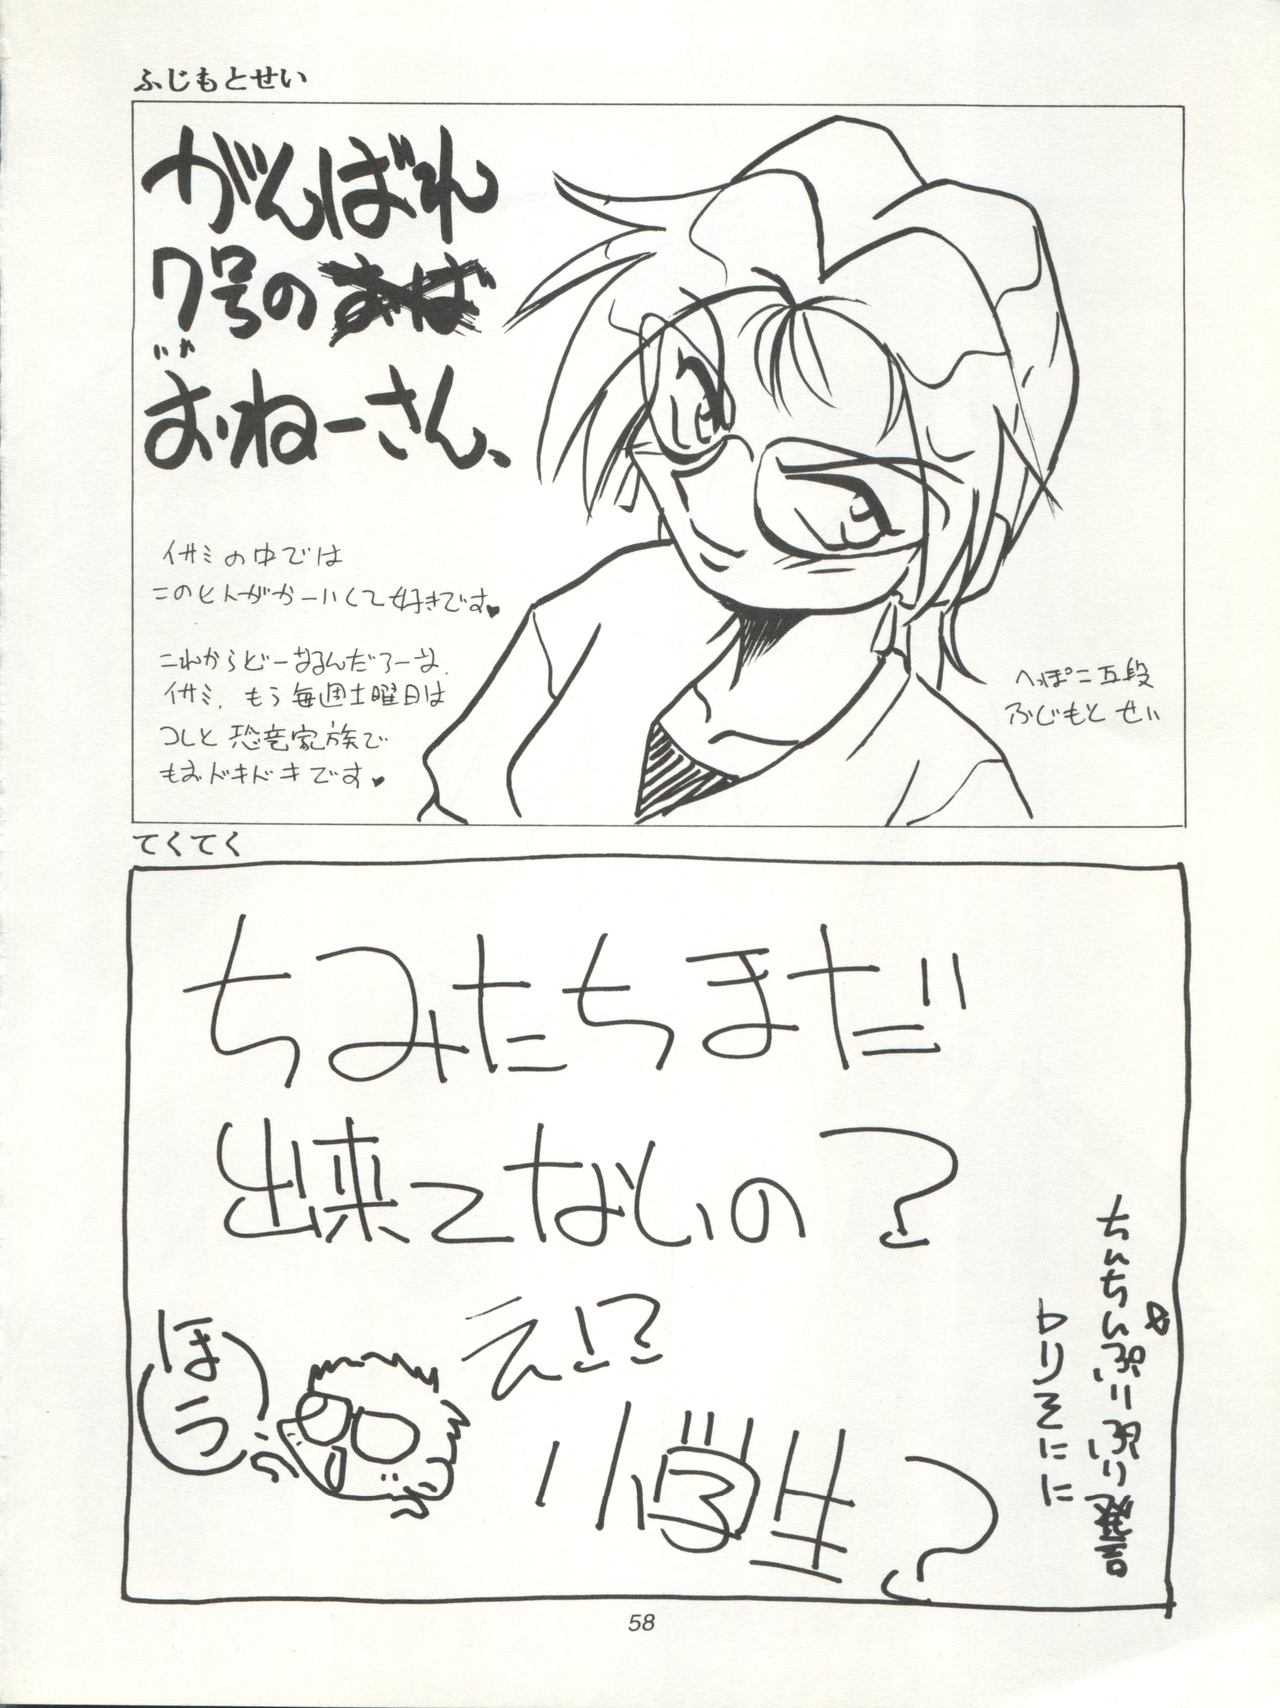 ふじもとせい
がんばれ
7号のおば
おねーさん、
イサミの中では
このヒトがかーいくて好きです♥
これからどーなるんだろーな、
イサミ、もう毎週土曜日は
コレと恐竜家族で
もおドキドキです♥
へっぽこ五段
ふじもとせい
てくてく
ちみたちまだ
出来てないの?
え!?
小学生?
ほう
ちぃちぃぷりぷり発言